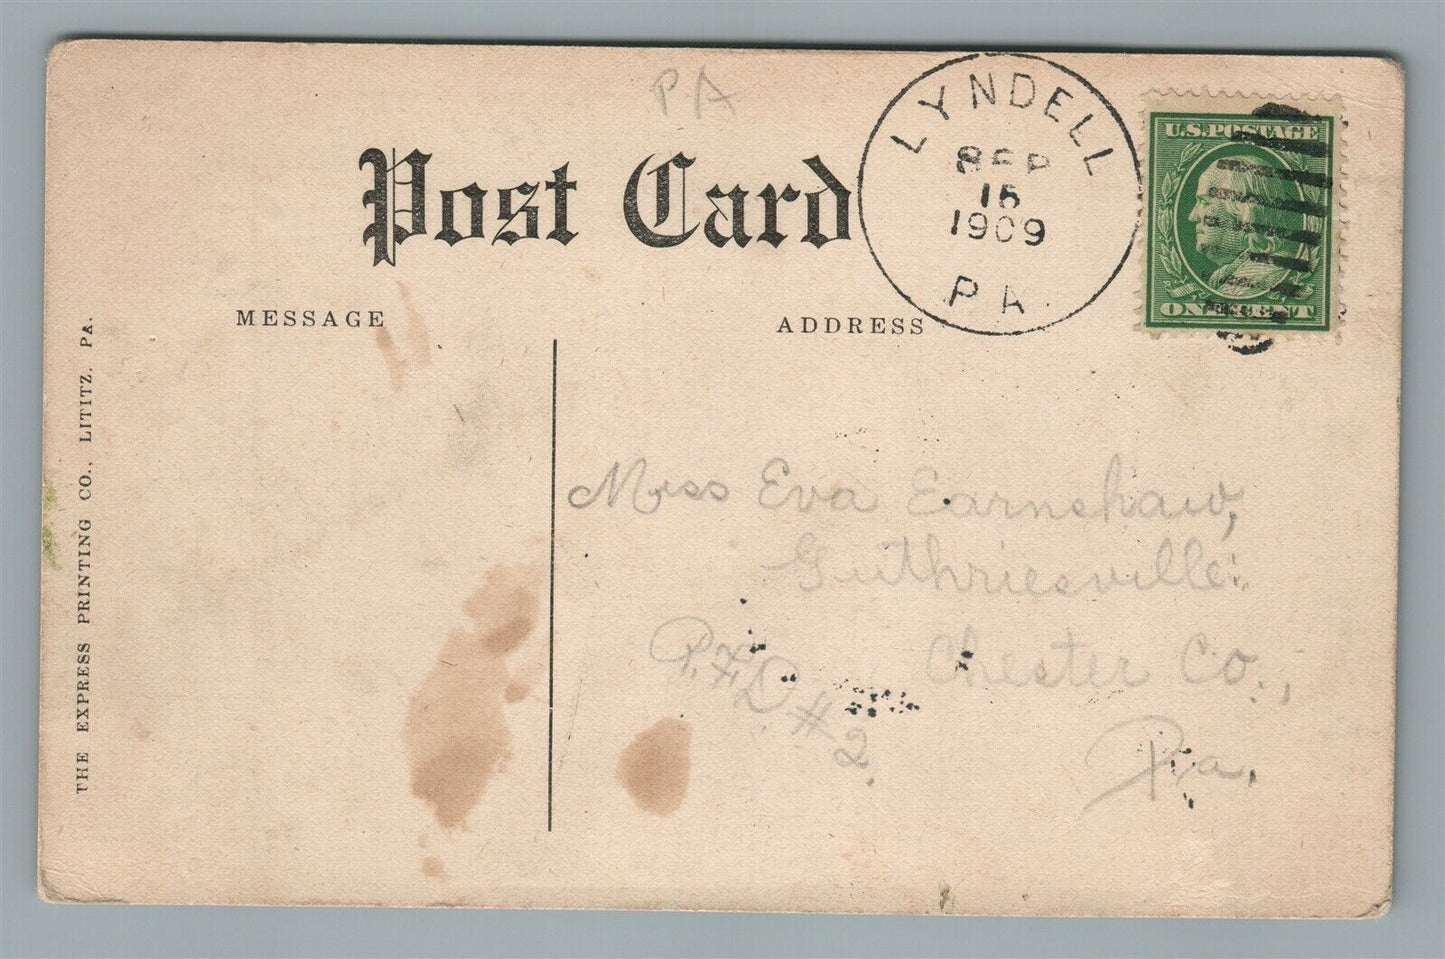 PA
Post Card
LYNDELL
SEP
15
1909
PA.
U.S. POSTAGE
ONE CENT
MESSAGE
ADDRESS
THE EXPRESS PRINTING CO., LITITZ. PA.
Miss Eva Earnshaw,
Guthriesville.
Chester Co.,
R.F.D. # 2.
Pa.